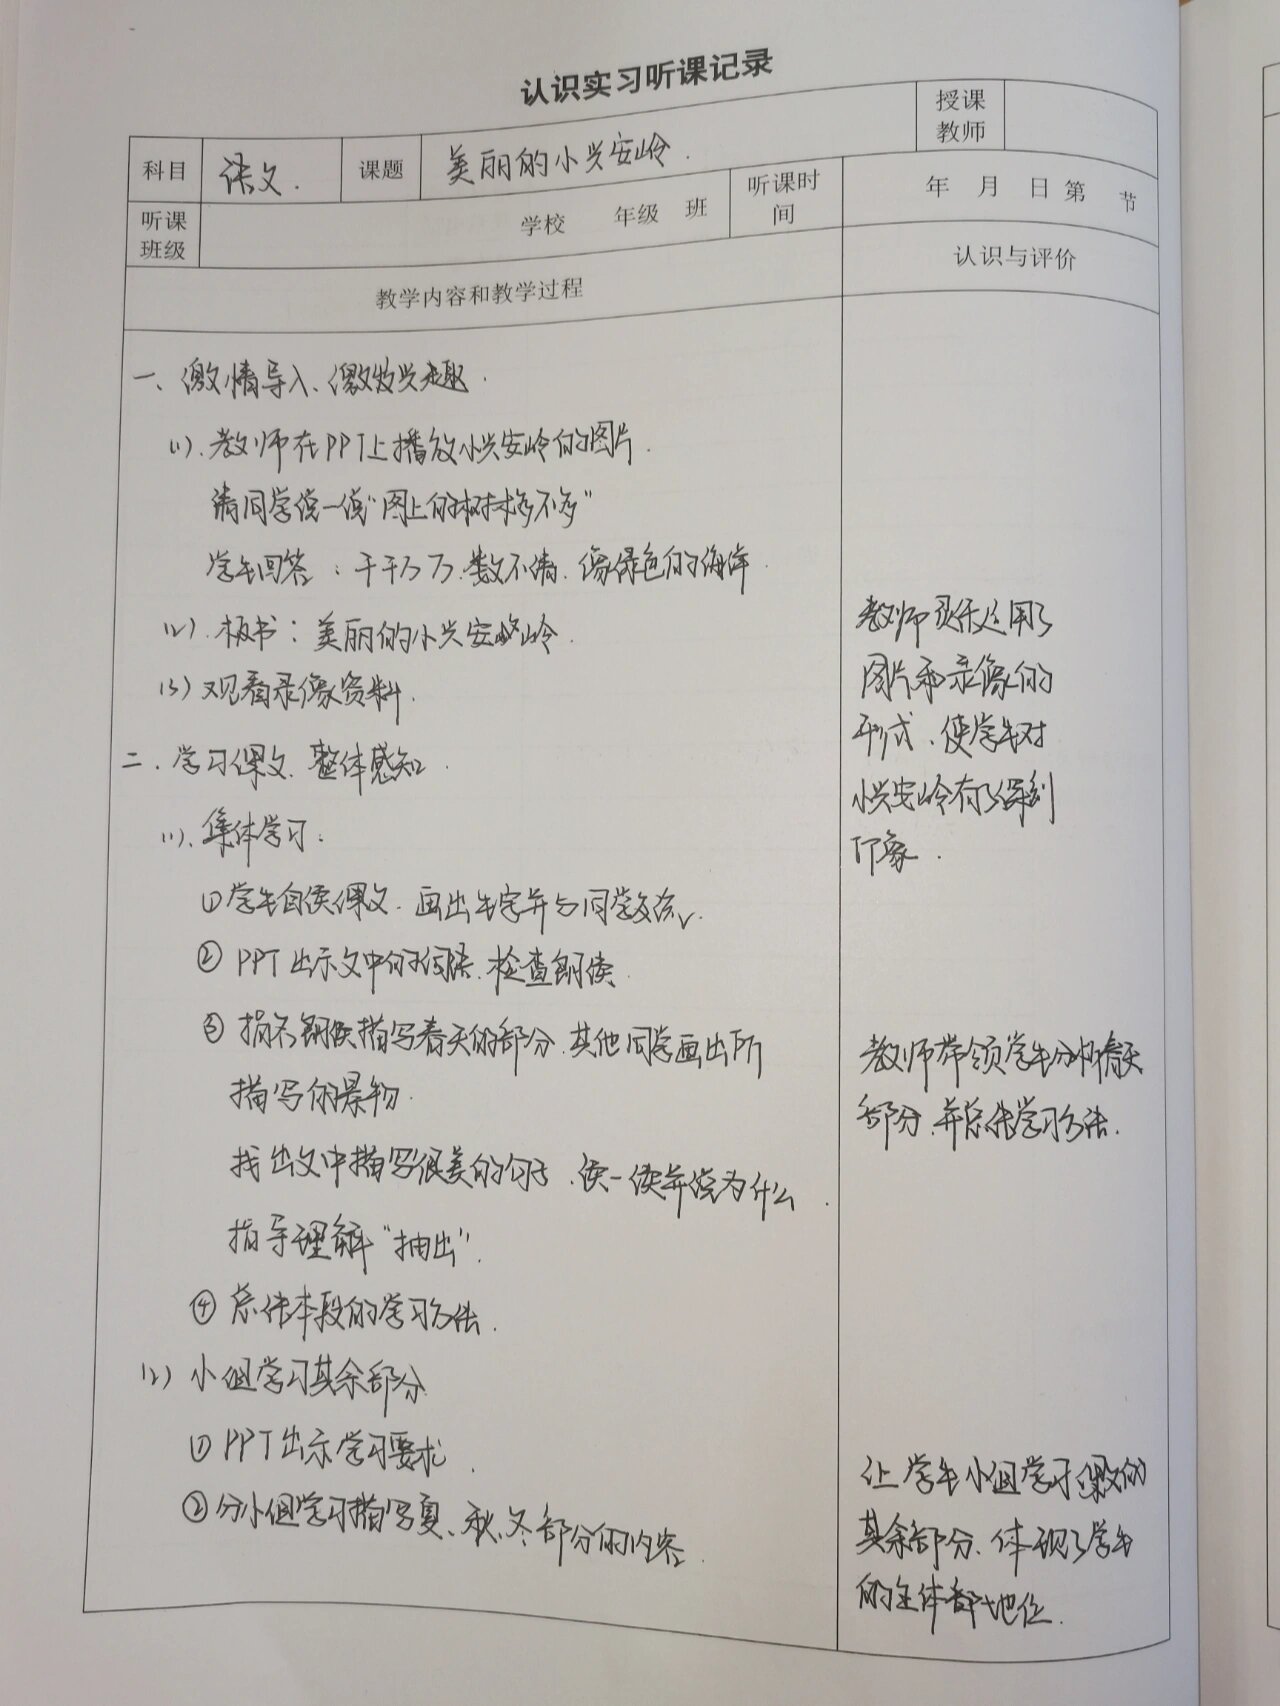 认识实习听课记录
科目 语文. 课题 美丽的小兴安岭. 授课教师
听课班级 学校 年级 班 听课时间 年 月 日 第 节
教学内容和教学过程 认识与评价
一、激情导入、激发兴趣.
(1).教师在PPT上播放小兴安岭的图片.
请同学说一说"图上的树木多不多"
学生回答：千千万万、数不清、像绿色的海洋.
(2).板书：美丽的小兴安岭.
(3)观看录像资料.
二.学习课文、整体感知.
(1).集体学习.
①学生自读课文.画出生字并与同学交流.
② PPT出示文中的词语.检查朗读.
③ 指名朗读描写春天的部分.其他同学画出所
描写的景物.
找出文中描写很美的句子、读一读并说为什么.
指导理解"抽出".
④ 总结本段的学习方法.
(2) 小组学习其余部分
① PPT出示学习要求.
②分小组学习描写夏、秋、冬部分的内容.
教师灵活运用了
图片和录像的
形式、使学生对
小兴安岭有了深刻
印象.
教师带领学生分析春天
部分.并总结学习方法.
让学生小组学习课文的
其余部分、体现了学生
的主体地位.